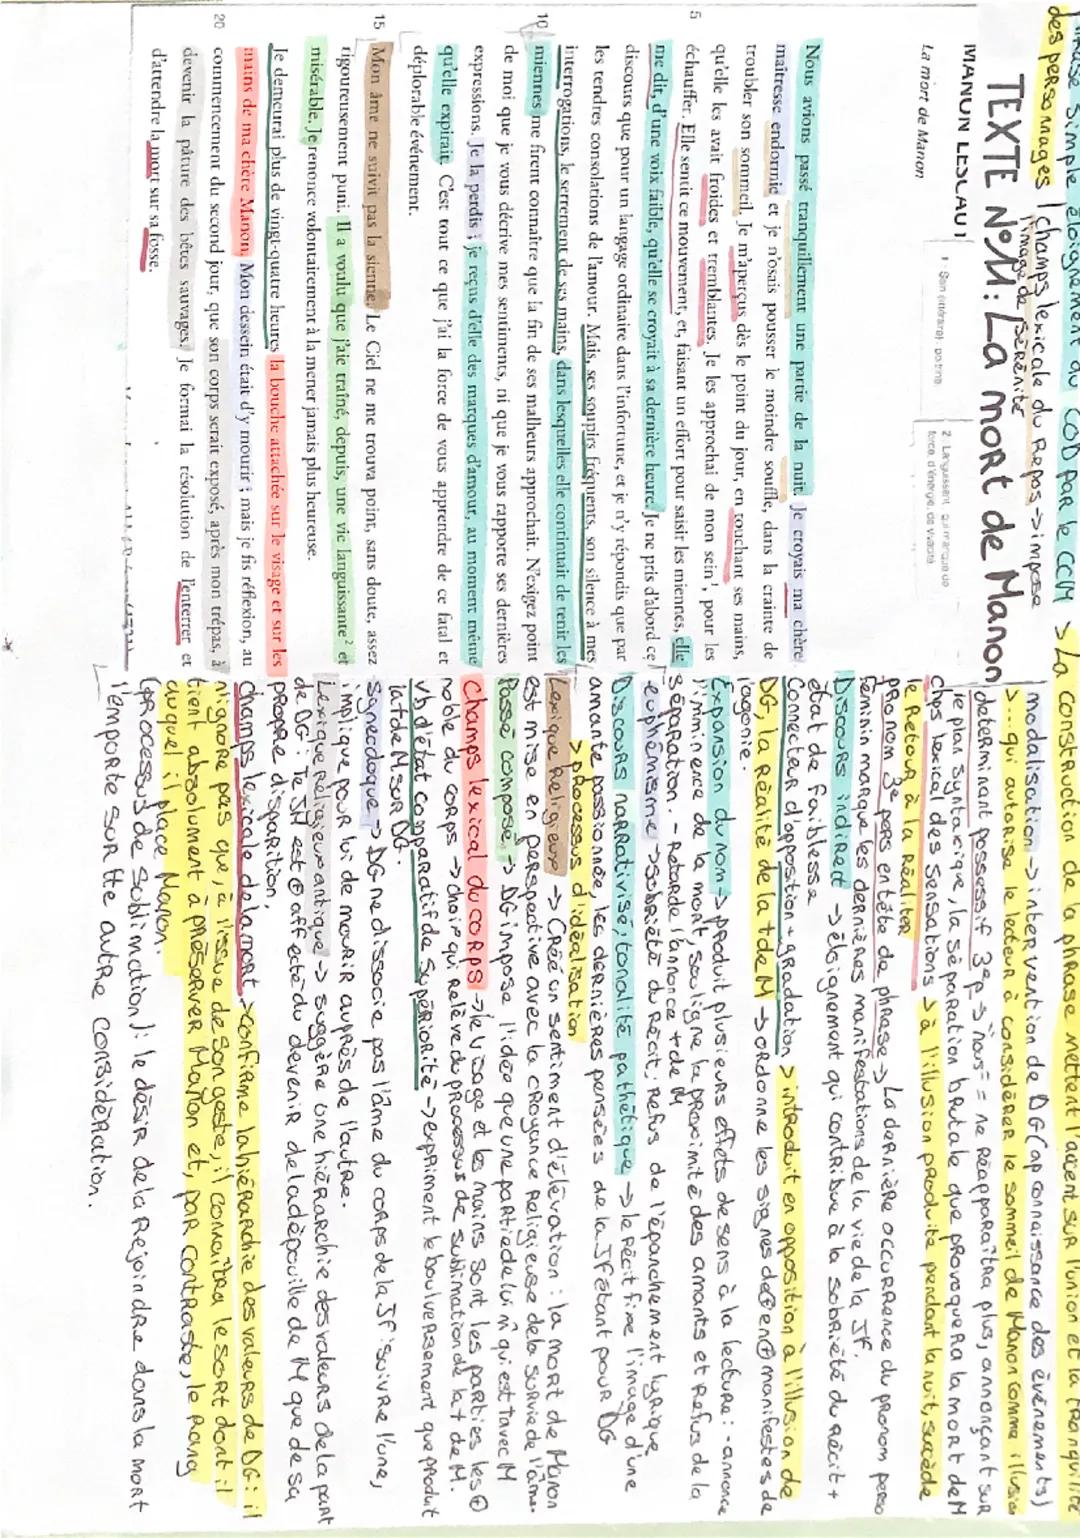 phrase simple éloignement du COD par le CC1M
des personnages | champs lexicale du Repos -> impose
l'image de sérénité
TEXTE N°11 : La mort de Manon
MANON LESCAUT
La mort de Manon
1. Sein (littéraire) : poitrine
2. Languissant : qui manque de
force, d'énergie, de vivacité
Nous avions passé tranquillement une partie de la nuit. Je croyais ma chère
maîtresse endormie et je n'osais pousser le moindre souffle, dans la crainte de
troubler son sommeil. Je m'aperçus dès le point du jour, en touchant ses mains,
qu'elle les avait froides et tremblantes. Je les approchai de mon sein¹, pour les
5 échauffer. Elle sentit ce mouvement, et, faisant un effort pour saisir les miennes, elle
me dit, d'une voix faible, qu'elle se croyait à sa dernière heure. Je ne pris d'abord ce
discours que pour un langage ordinaire dans l'infortune, et je n'y répondis que par
les tendres consolations de l'amour. Mais, ses soupirs fréquents, son silence à mes
interrogations, le serrement de ses mains, dans lesquelles elle continuait de tenir les
10 miennes me firent connaître que la fin de ses malheurs approchait. N'exigez point
de moi que je vous décrive mes sentiments, ni que je vous rapporte ses dernières
expressions. Je la perdis ; je reçus d'elle des marques d'amour, au moment même
qu'elle expirait. C'est tout ce que j'ai la force de vous apprendre de ce fatal et
déplorable événement.
15 Mon âme ne suivit pas la sienne. Le Ciel ne me trouva point, sans doute, assez
rigoureusement puni. Il a voulu que j'aie traîné, depuis, une vie languissante² et
misérable. Je renonce volontairement à la mener jamais plus heureuse.
Je demeurai plus de vingt-quatre heures la bouche attachée sur le visage et sur les
mains de ma chère Manon. Mon dessein était d'y mourir ; mais je fis réflexion, au
20 commencement du second jour, que son corps serait exposé, après mon trépas, à
devenir la pâture des bêtes sauvages. Je formai la résolution de l'enterrer et
d'attendre la mort sur sa fosse.
> La construction de la phrase mettent l'accent sur l'union et la tranquilité
modalisation -> intervention de DG (ap connaissance des événements)
> .... qui autorise le lecteur à considérer le sommeil de Manon comme illusion
déterminant possessif 3e p -> "nous" = ne réapparaîtra plus, annonçant sur
le plan syntaxique, la séparation brutale que provoquera la mort de M
chps lexical des sensations -> à l'illusion produite pendant la nuit, succède
le retour à la réalité
pronom 3e pers en tête de phrase -> La dernière occurrence du pronom perso
féminin marque les dernières manifestations de la vie de la JF.
Discours indirect -> éloignement qui contribue à la sobriété du récit +
état de faiblesse
Connecteur d'opposition + gradation > introduit en opposition à l'illusion de
DG, la réalité de la † de M -> ordonne les signes de ⊕ en ⊕ manifestes de
l'agonie.
Expansion du nom -> produit plusieurs effets de sens à la lecture : - annonce
l'imminence de la mort, souligne la proximité des amants et refus de la
séparation. - Retarde l'annonce † de M
euphémisme -> sobriété du récit : refus de l'épanchement lyrique
Discours narrativisé, tonalité pathétique -> le récit fixe l'image d'une
amante passionnée, les dernières pensées de la JF étant pour DG
> processus d'idéalisation
Lexique religieux -> Crée un sentiment d'élévation : la mort de Manon
est mise en perspective avec la croyance religieuse de la survie de l'âme.
Passé composé -> DG impose l'idée que une partie de lui m̂ qui est † avec M
Champs lexical du corps -> le visage et les mains sont les parties les ⊕
noble du corps -> choix qui relève du processus de sublimation de la † de M.
vb d'état comparatif de supériorité -> expriment le boulversement que produit
la † de M sur DG.
Synecdoque -> DG ne dissocie pas l'âme du corps de la JF : suivre l'une,
implique pour lui de mourir auprès de l'autre.
Lexique religieux antique -> suggère une hiérarchie des valeurs de la part
de DG : Le JH est ⊕ affecté du devenir de la dépouille de M que de sa
propre disparition,
Champs lexicale de la mort -> confirme la hiérarchie des valeurs de DG : il
n'ignore pas que, à l'issue de son geste, il connaîtra le sort dont il
tient absolument à préserver Manon et, par contraste, le rang
auquel il place Manon.
(processus de sublimation) : le désir de la rejoindre dans la mort
l'emporte sur tte autre considération.